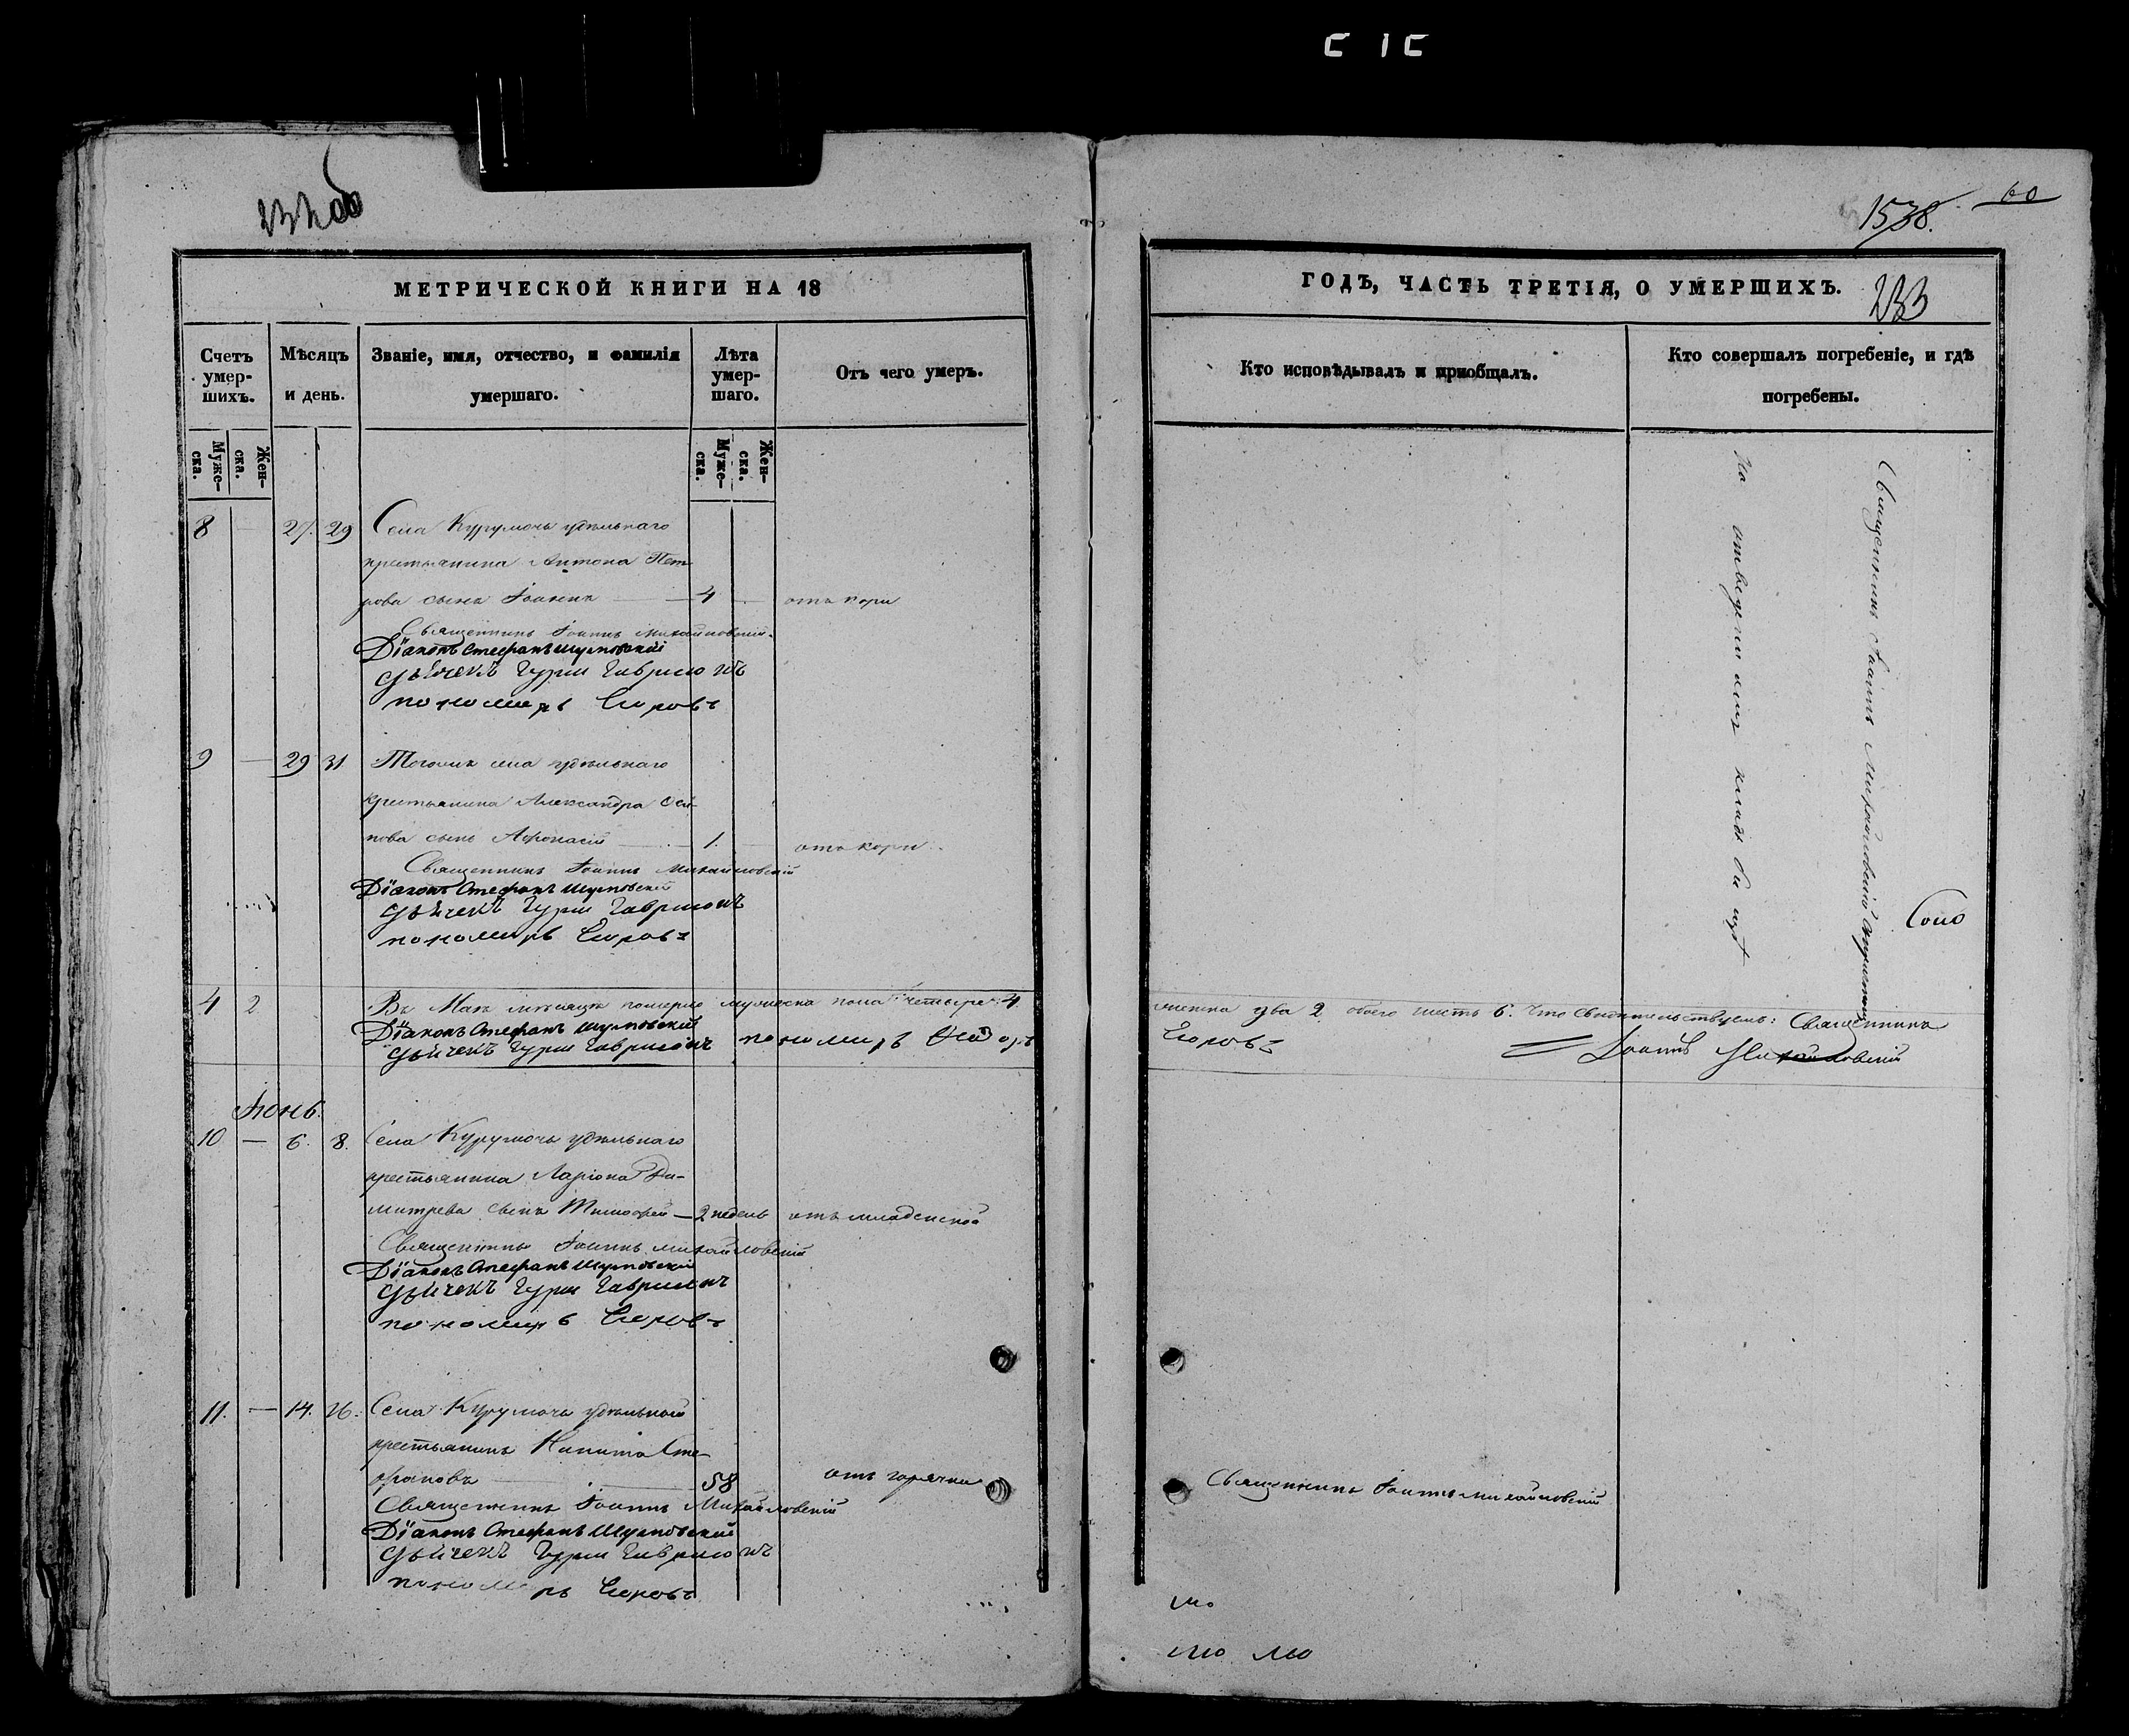 1538. 60
МЕТРИЧЕСКОЙ КНИГИ НА 18
Счетъ умер-шихъ.
Муже-ска.
Жен-ска.
Мѣсяцъ и день.
Званіе, имя, отчество, и фамилія умершаго.
Лѣта умер-шаго.
Муже-ска.
Жен-ска.
Отъ чего умеръ.
8 — 27. 29 Села Курумоча удѣльнаго
крестьянина Антона Пет-
рова сынъ Іоаннъ — 4 — отъ кори
Священникъ Іоаннъ Михайловскій.
Діаконъ Стефанъ
Дьячекъ Гурій Гавриловъ
пономарь Егоровъ
9 — 29 31 Тогожъ села удѣльнаго
крестьянина Александра Оси-
пова сынъ Афонасій — 1. отъ кори
Священникъ Іоаннъ Михайловскій
Діаконъ Стефанъ
Дьячекъ Гурій Гавриловъ
пономарь Егоровъ
4 2 Въ Маѣ мѣсяцѣ померло мужеска пола четыре 4.
Діаконъ Стефанъ
Дьячекъ Гурій Гавриловъ пономарь
Іюнь.
10 — 6. 8. Села Курумоча удѣльнаго
крестьянина Ларіона Ди-
митрева сынъ Тимофей — 2 недель отъ младенской
Священникъ Іоаннъ Михайловскій
Діаконъ Стефанъ
Дьячекъ Гурій Гавриловъ
пономарь Егоровъ
11. — 14. 16. Села Курумоча удѣльный
крестьянинъ Никита Сте-
фановъ — 58 отъ горячки
Священникъ Іоаннъ Михайловскій
Діаконъ Стефанъ
Дьячекъ Гурій Гавриловъ
пономарь Егоровъ
ГОДЪ, ЧАСТЬ ТРЕТІЯ, О УМЕРШИХЪ.
233
Кто исповѣдывалъ и пріобщалъ.
Кто совершалъ погребеніе, и гдѣ погребены.
Священникъ Іоаннъ Михайловскій
На отведенномъ кладбищѣ
женска два 2 обоего шесть 6. Что свидѣтельствуемъ: Священникъ
Егоровъ Іоаннъ Михайловскій
Священникъ Іоаннъ Михайловскій